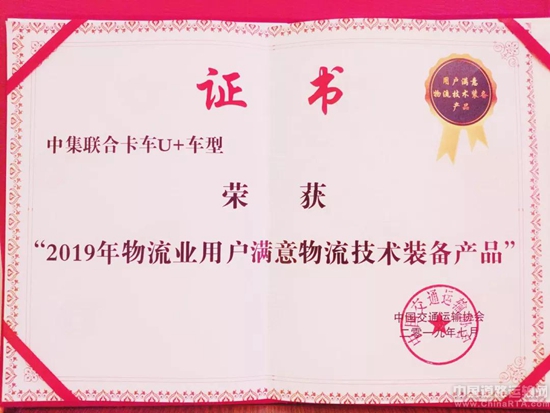 证 书
用户满意
物流技术装备
产品
中集联合卡车U+车型
荣 获
“2019年物流业用户满意物流技术装备产品”
中国交通运输协会
二〇一九年七月
www.ChinaRTA.com